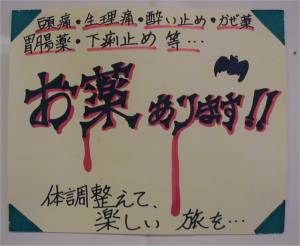 頭痛・生理痛・酔い止め・カゼ薬
胃腸薬・下痢止め 等…
お薬あります!!
体調整えて、
楽しい 旅を…